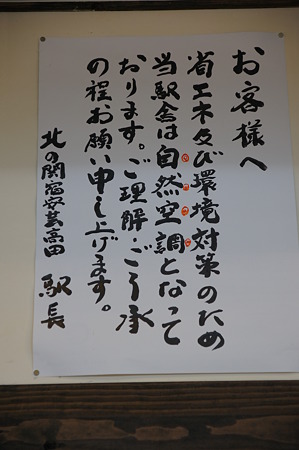 お客様へ
省エネ及び環境対策のため
当駅舎は自然空調となって
おります。ご理解・ごう承
の程お願い申し上げます。
北の関宿安芸高田 駅長